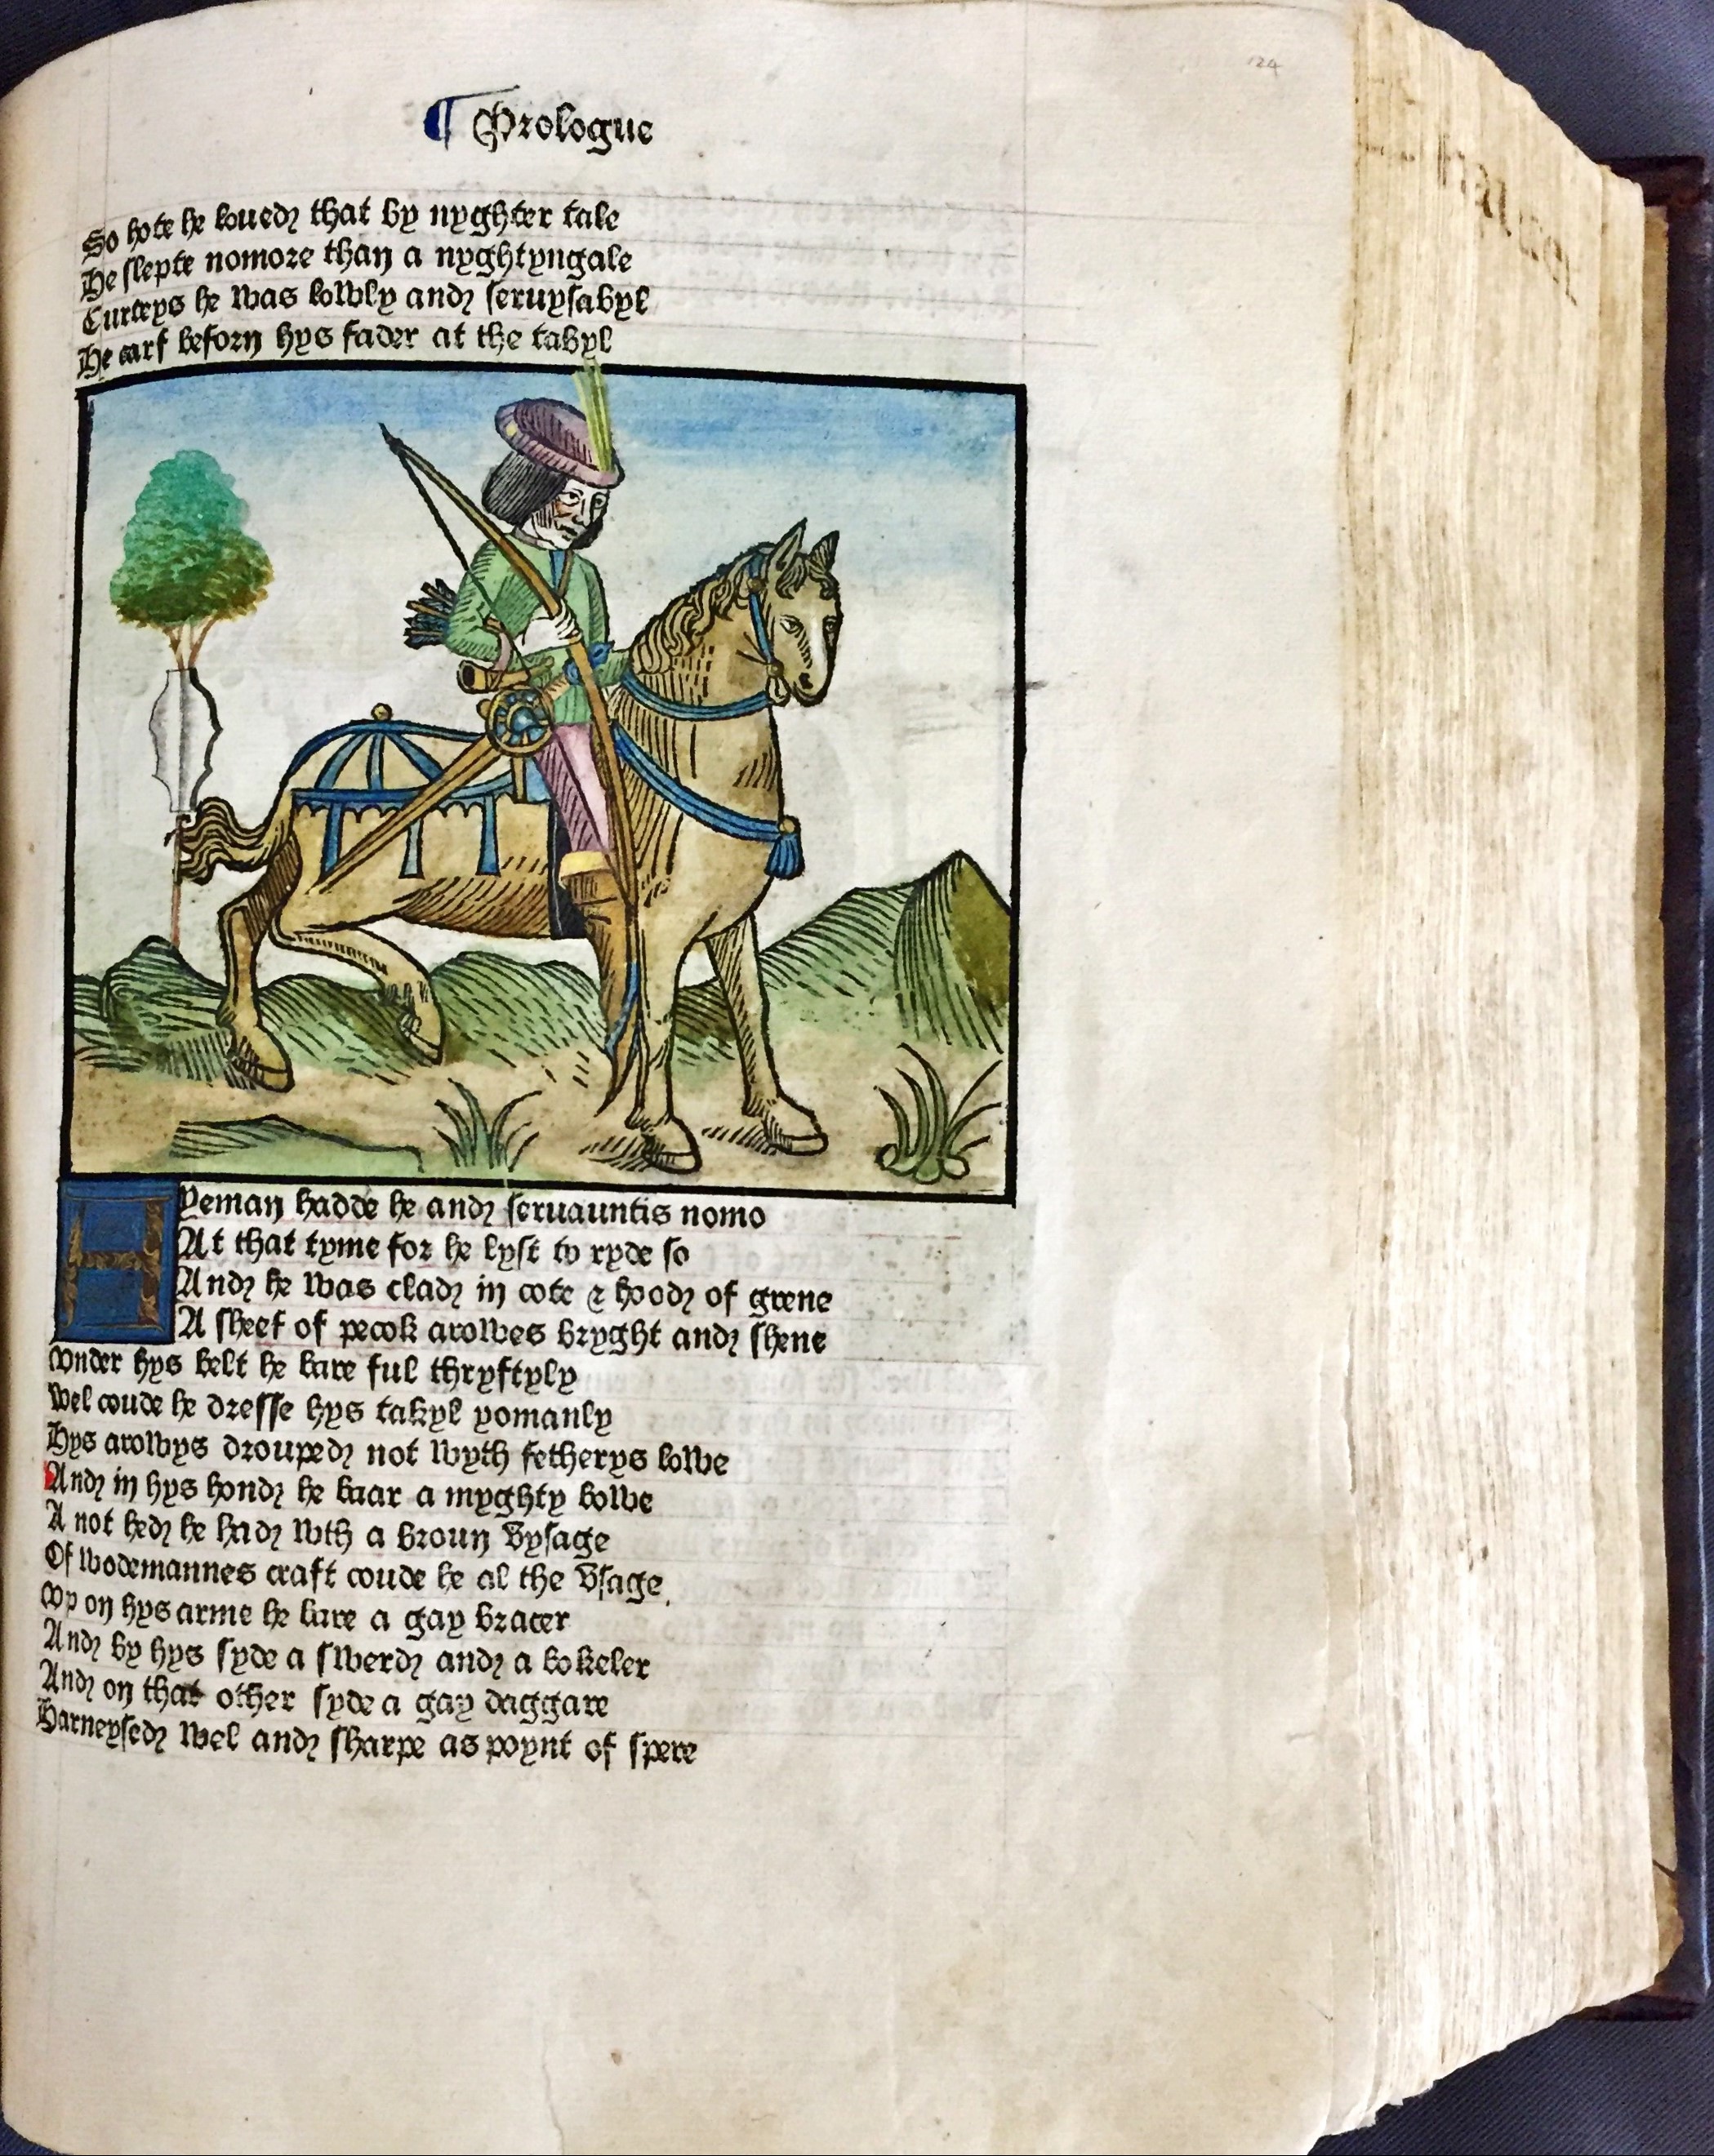 124
¶ Prologue
So hote he loued that by nyghter tale
He slepte nomore than a nyghtyngale
Curteys he was lowly and seruysabyl
He carf beforn hys fader at the tabyl
A yeman hadde he and seruauntis nomo
At that tyme for he lyst to ryde so
And he was clad in cote & hood of grene
A sheef of pecok arowes bryght and shene
Vnder hys belt he bare ful thryftyly
Wel coude he dresse hys takyl yomanly
Hys arowys drouped not wyth fetherys lowe
And in hys hond he baar a myghty bowe
A not hed he had wth a broun vysage
Of wodemannes craft coude he al the vsage
Vp on hys arme he bare a gay bracer
And by hys syde a swerd and a bokeler
And on that other syde a gay daggare
Harneysed wel and sharpe as poynt of spere